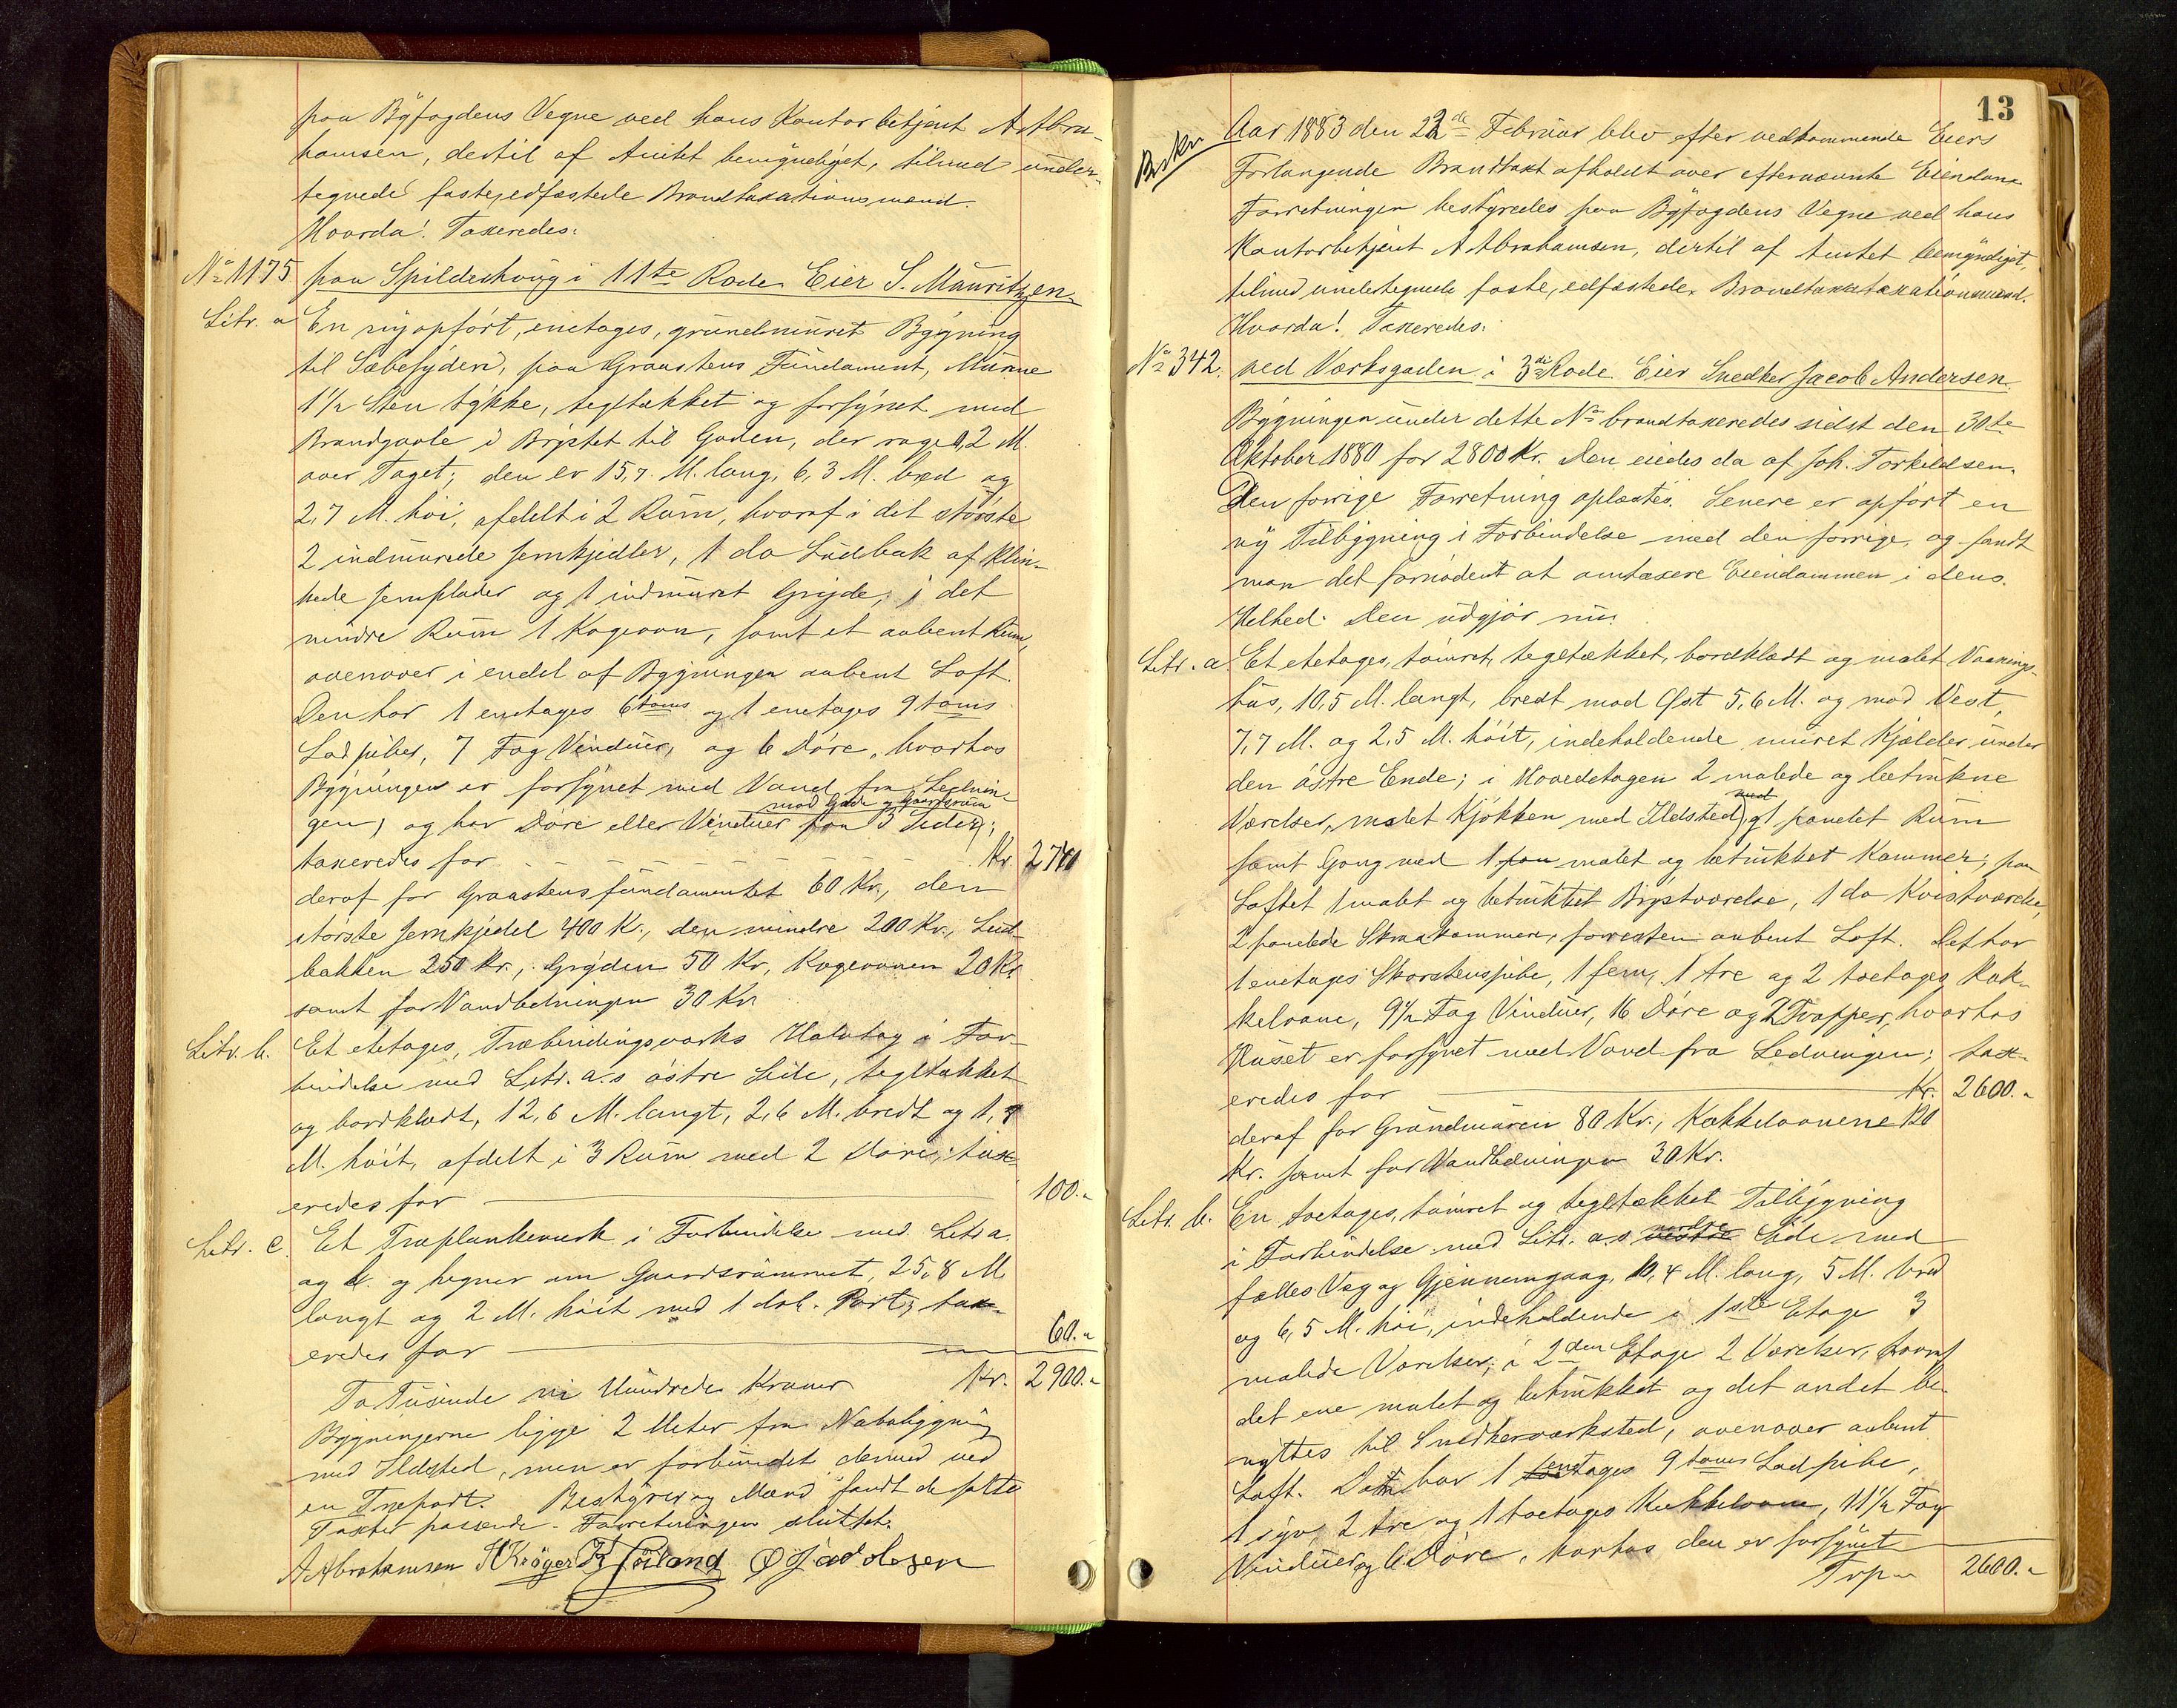 paa Byfogdens Vegne ved hans Kontorbetjent A Abra-
hamsen, dertil af Amtet bemyndiget, tilmed under-
tegnede faste, edfæstede Brandtaxationsmænd.
Hvorda! Taxeredes:
No 1175 paa Spildeshaug i 11te Rode Eier S. Mauritzen.
Litr. a En ny opført, enetages, grundmuret Bygning
til Sæbesyderi, paa Graastens Fundament, Murene
1 1/2 Sten tykke, tegltækket og forsynet med
Brandgavle i Brystet til Gaden, der rager 0,2 M.
over Taget; den er 15,7 M. lang, 6,3 M. bred og
2,7 M. høi, afdelt i 2 Rum, hvoraf i det største
2 indmurede Jernkjedler, 1 do Ludbak af klin-
kede Jernplader og 1 indmuret Gryde; i det
mindre Rum 1 Kogeovn, samt et aabent Rum,
ovenover i endel af Bygningen aabent Loft.
Den har 1 enetages 6toms og 1 enetages 9toms
Lodpiber, 7 Fag Vinduer, og 6 Døre, hvorhos
Bygningen er forsynet med Vand fra Lednin-
mod Gade og Gaardsrum
gen, og har Døre eller Vinduer paa 3 Sider;
taxeredes for Kr. 2740
deraf for Graastensfundamentet 60 Kr., den
største Jernkjedel 400 Kr., den mindre 200 Kr., Lud-
bakken 250 Kr., Gryden 50 Kr, Kogeovnen 20 Kr
samt for Vandledningen 30 Kr.
Litr. b. Et etetages, Træbindingsverks Halvtag i For-
bindelse med Litr. a.s østre Side, tegltækket
og bordklædt, 12,6 M. langt, 2,6 M. bredt og 1,9
M. høit, afdelt i 3 Rum med 2 Døre; tax-
eredes for 100.-
Litr. c. Et Træplankeverk i Forbindelse med Litr a.
og b. og hegner om Gaardsrummet, 25,8 M.
langt og 2 M. høit med 1 dob. Port; tax-
eredes for 60.-
To Tusinde ni Hundrede Kroner Kr. 2900.-
Bygningerne ligge 2 Meter fra Nabobygning
med Ildsted, men er forbundet dermed ved
en Træport. Bestyrer og Mænd fandt de satte
Taxter passende. Forretningen sluttet.
A Abrahamsen K Krøger Østand
13
Brkr Aar 1883 den 22de Februar blev efter vedkommende Eiers
Forlangende Brandtaxt afholdt over efternævnte Eiendom
Forretningen bestyredes paa Byfogdens Vegne ved hans
Kontorbetjent A Abrahamsen, dertil af Amtet bemyndiget,
tilmed undertegnede faste, edfæstede Brandtaxataxationsmænd.
Hvorda! Taxeredes:
No 342. ved Værksgaden i 3die Rode Eier Snedker Jacob Andersen.
Bygningen under dette No brandtaxeredes sidst den 30te
Oktober 1880 for 2800 Kr. Den eiedes da af Joh. Torkeldsen.
Den forrige Forretning oplæstes. Senere er opført en
ny Tilbygning i Forbindelse med den forrige, og fandt
man det fornødent at omtaxere Eiendommen i dens
Helhed. Den udgjør nu:
Litr. a Et etetages, tømret, tegltækket, bordklædt og malet Vaanings-
hus, 10,5 M. langt, bredt mod Øst 5,6 M. og mod Vest,
7,7 M. og 2,5 M. høit, indeholdende muret Kjælder under
den østre Ende; i Hovedetagen 2 malede og betrukne
Værelser, malet Kjøkken med Ildsted, 1 panelet Rum
samt Gang med 1 malet og betrukket Kammer; paa
Loftet 1 malet og betrukket Brystværelse, 1 do Kvistværelse,
2 panelede Skraakammere, foresten aabent Loft. Det har
1 enetages Skorstenspibe, 1 fem, 1 tre og 2 toetages Kak-
kelovne, 9 1/2 Fag Vinduer, 16 Døre og 2 Trapper, hvorhos
Huset er forsynet med Vand fra Ledningen; tax-
eredes for Kr. 2600.-
deraf for Grundmuren 80 Kr., Kakkelovnene 120
Kr. samt for Vandledningen 30 Kr.
Litr. b. En toetages, tømret og tegltækket Tilbygning
i Forbindelse med Litr. a.s vestre Side med
fælles Væg og Gjennemgang, 10,4 M. lang, 5 M. bred
og 6,5 M. høi, indeholdende i 1ste Etage 3
malede Værelser; i 2den Etage 2 Værelser, hvoraf
det ene malet og betrukket og det andet be-
nyttes til Snedkerværksted, ovenover aabent
Loft. Den har 1 enetages 9toms Lodpibe,
1 syv, 2 tre og 1 toetages Kakkelovne, 11 1/2 Fag
Vinduer og 6 Døre, hvorhos den er forsynet
Trp. 2600.-